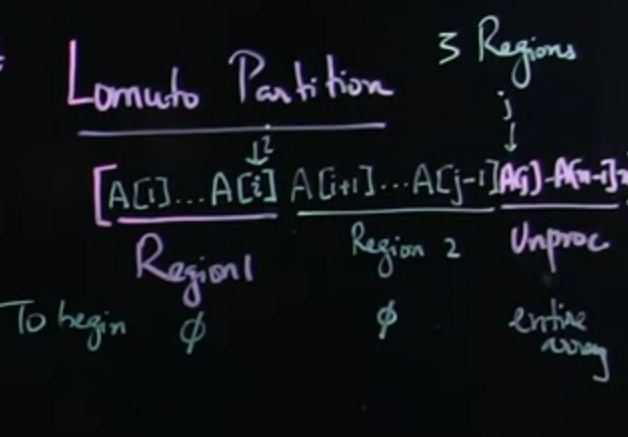 3 Regions
Lomuto Partition
i
j
[A[1]...A[i] A[i+1]...A[j-1] A[j]-A[n-1]
Region 1 Region 2 Unproc
To begin φ φ entire array